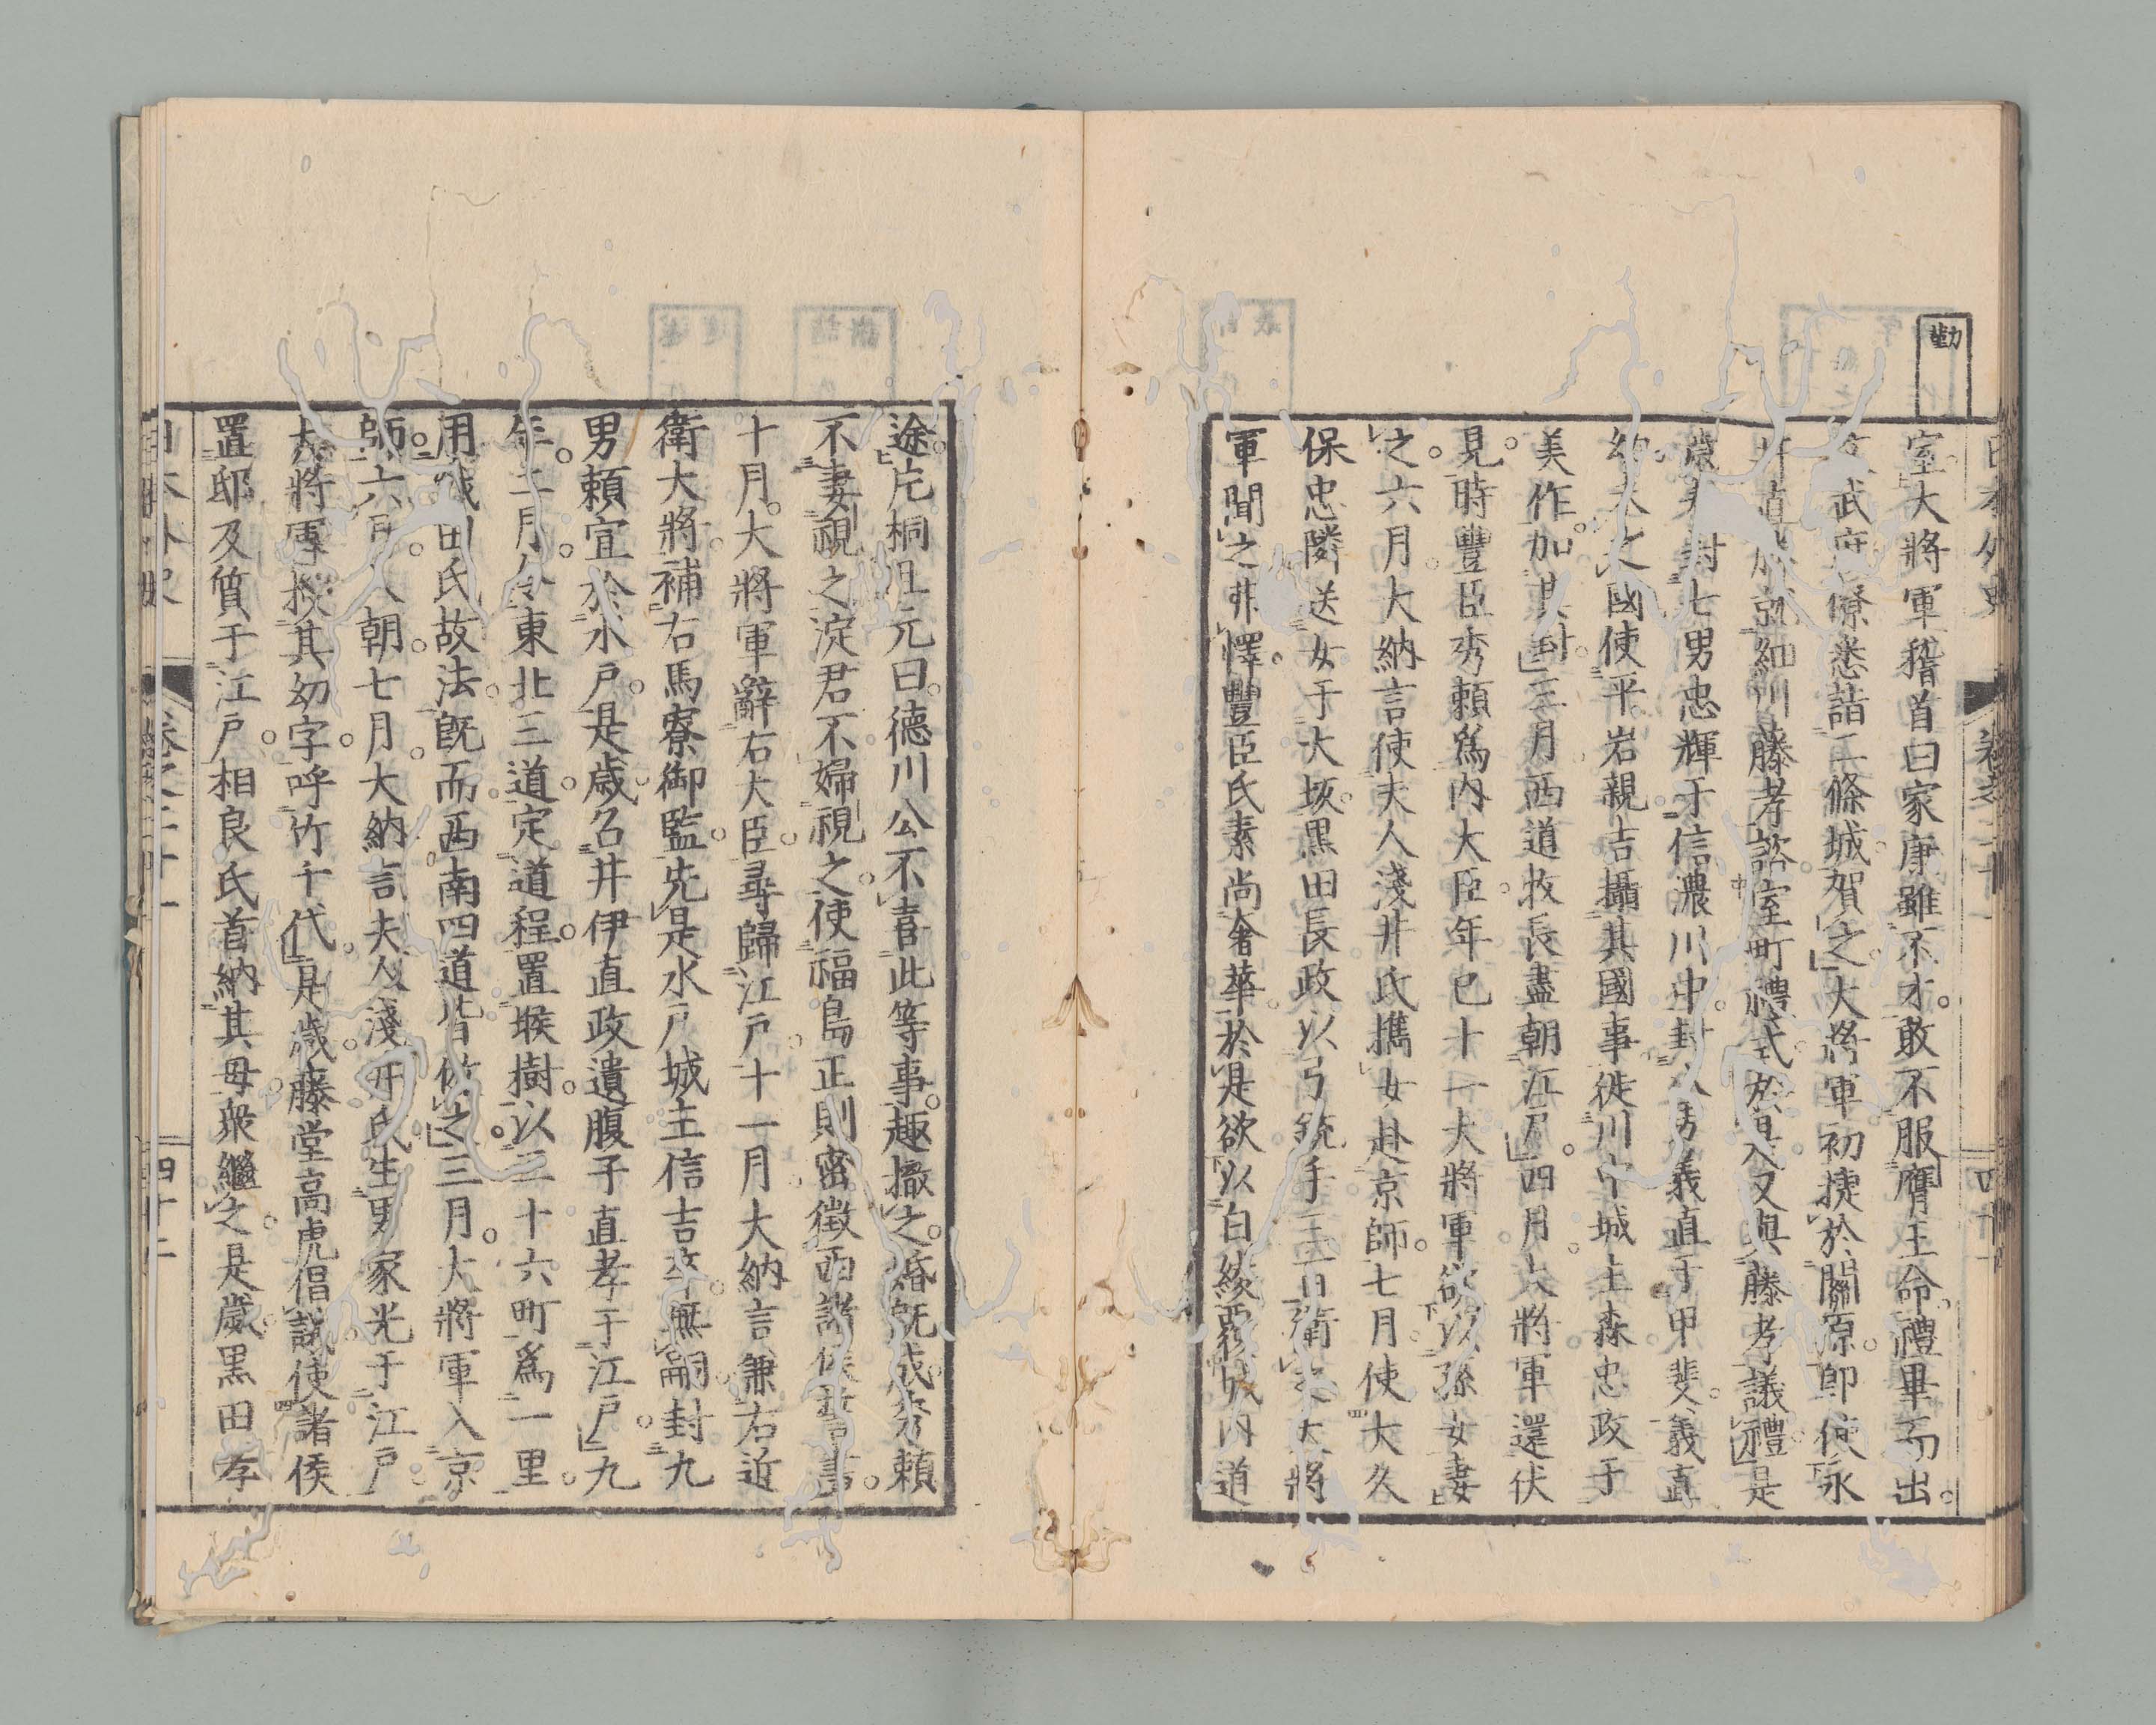 勤
室大將軍稽首曰家康雖不才敢不服膺王命禮畢而出
武府僚悉詣二條城賀之大將軍初捷於關原卽使永
井直勝就細川藤孝諮室町禮式於是又與藤孝議禮是
歲 封七男忠輝于信濃川中封八男義直于甲斐義直
幼未之國使平岩親吉攝其國事徙川中城主森忠政于
美作加其封三月西道牧長盡朝江戶四月大將軍還伏
見時豐臣秀賴爲內大臣年已十一大將軍欲以孫女妻
之六月大納言使夫人淺井氏攜女赴京師七月使大久
保忠隣送女于大坂黑田長政以弓銃手三百衛之大將
軍聞之非懌豐臣氏素尚奢華於是欲以白綾覆城內道
途片桐且元曰德川公不喜此等事趣撤之婚既成秀賴
不妻視之淀君不婦視之使福島正則密徵西諸侯誓書
十月大將軍辭右大臣尋歸江戶十一月大納言兼右近
衛大將補右馬寮御監先是水戶城主信吉卒無嗣封九
男賴宣於水戶是歲召井伊直政遺腹子直孝于江戶九
年二月令東北三道定道程置堠樹以三十六町爲一里
用織田氏故法既而西南四道皆倣之三月大將軍入京
師六月入朝七月大納言夫人淺井氏生男家光于江戶
大將軍授其幼字呼竹千代是歲藤堂高虎倡議使諸侯
置邸及質于江戶相良氏首納其母衆繼之是歲黑田孝
日本外史 卷之二十一 四十二